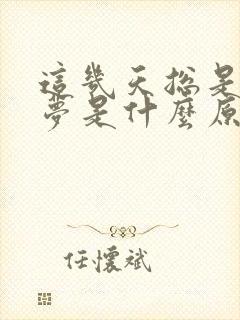 這幾天總是
夢是什麼原
任懷斌